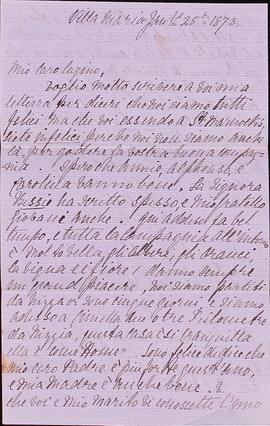 Villa Maria Jan 25 1873.
Mio caro cugino,
voglio molto scrivere a voi una
lettera per dirvi che noi siamo tutti
felici ma che voi essendo a St
siete infelici perche noi non siamo anche
la, per godere la vostra buona compag
nia. Spero che Annie, Alphonso, e
vanno bene. La Signora
ha scritto spesso, e mio fratello
anche. Qui adesso fa bel
tempo, e tutta la campagna all'intorno
è molto bella gli alberi, gli aranci,
la vigna e i fiori danno sempre
un grand piacere, noi siamo partiti
da Nizza or sono cinque giorni e siamo
adesso a tre
da Nizza, questa casa è si tranquilla
ch'è come Sono felice di dire che
mio caro Padre è piu forte quest'anno,
e mia madre è anche bene. È
che voi e mio marito vi conoscete l'uno